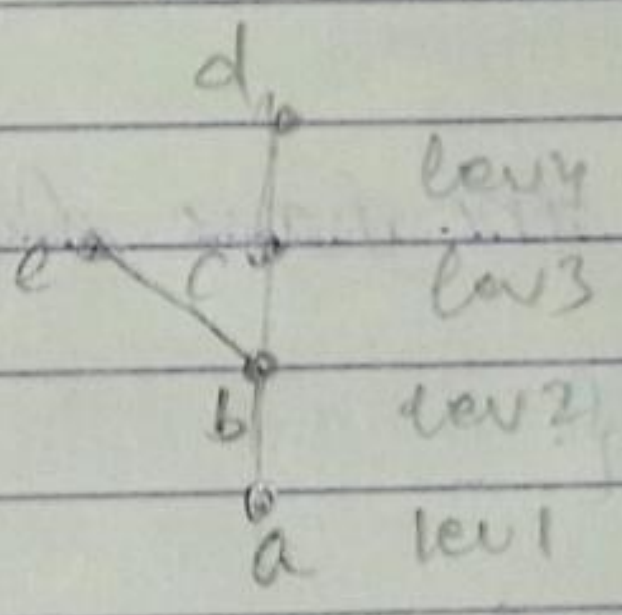 d
lev4
e c lev3
b lev2
a lev1